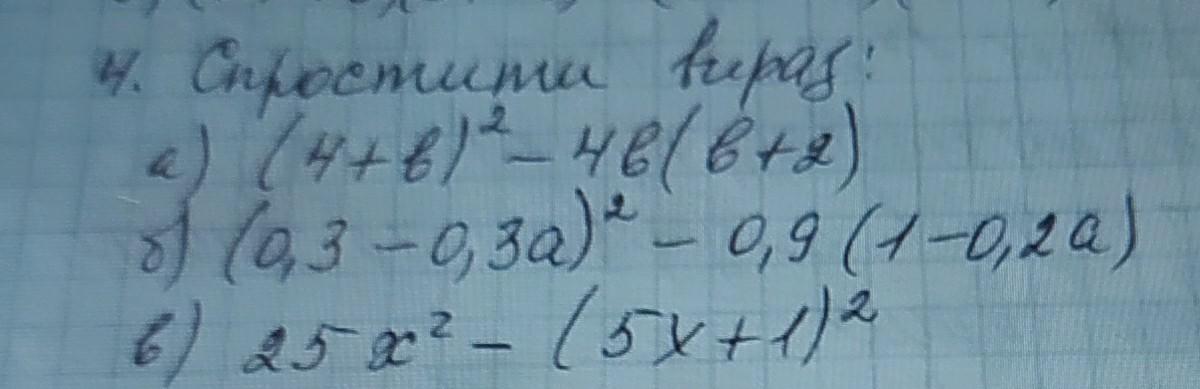 4. Спростити вираз:
а) (4+в)² - 4в(в+2)
б) (0,3 - 0,3а)² - 0,9(1-0,2а)
в) 25x² - (5x+1)²